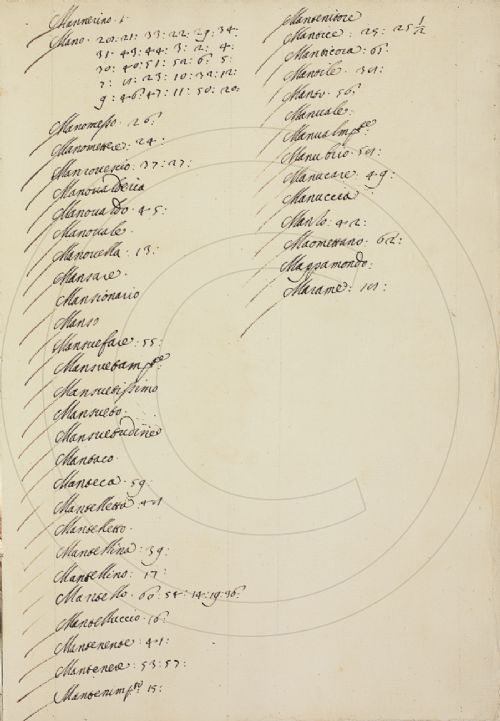 Mannerino. 1.
Mano. 20: 21: 33: 22: 29: 34:
31: 43: 44: 3: 2: 4:
30: 40: 51: 52: 6: 5:
7: 23: 10: 32: 12:
9: 46: 47: 11: 50: 20:
Manomesso. 26.
Manomettere. 24:
Manrovescio: 37: 27:
Manovalderia
Manovaldo. 45:
Manovale.
Manovella. 13:
Mansare.
Mansionario
Manso
Mansuefare. 55:
Mansuetam.te
Mansuetissimo
Mansueto.
Mansuetudine
Mantaco.
Manteca. 59.
Mantelletta
Mantelletto.
Mantellina: 39:
Mantellino: 17:
Mantello. 60. 54: 14: 19: 36.
Mantelluccio. 16.
Mantenente: 41:
Mantenere: 53: 57:
Mantenim.to 15:
Mantenitore
Mantice. 25: 25 1/2
Manticora: 65.
Mantile.
Manto. 56.
Manuale.
Manualm.te
Manubrio.
Manucare. 49:
Manuccia
Manzo: 42:
Maomettano: 62:
Mappamondo:
Marame: